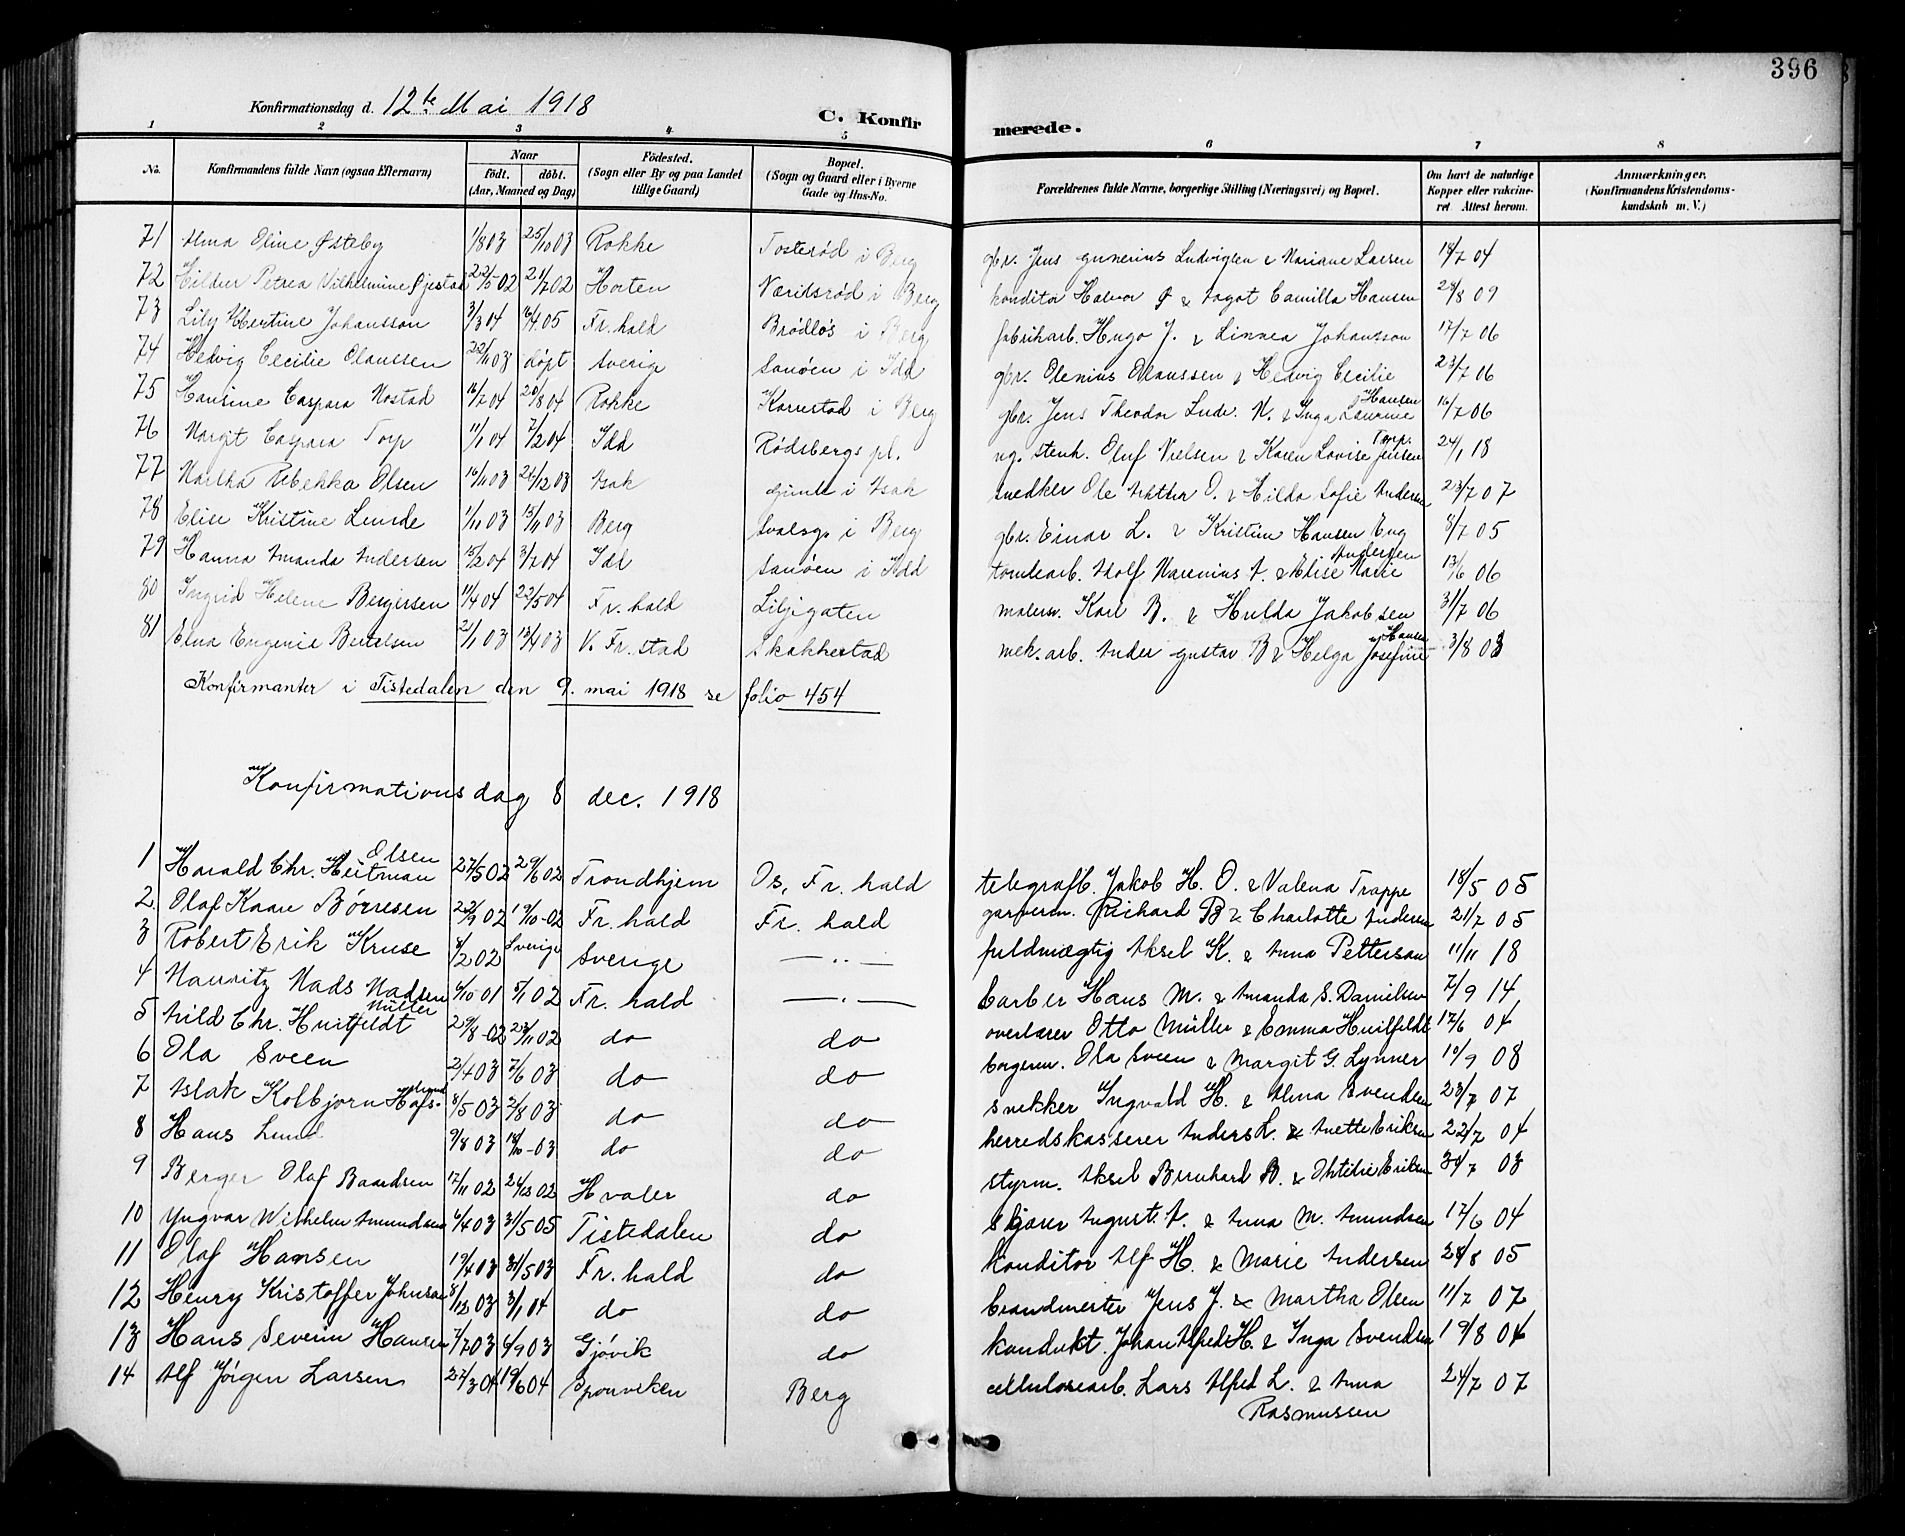 396
Konfirmationsdag d. 12te Mai 1918
C. Konfirmerede.
1 2 3 4 5 6 7 8
No. Konfirmandens fulde Navn (ogsaa Efternavn) Naar født. døbt. (Aar, Maaned og Dag) Födested. (Sogn eller By og paa Landet tillige Gaard) Bopæl. (Sogn og Gaard eller i Byerne Gade og Hus-No. Forældrenes fulde Navne, borgerlige Stilling (Næringsvei) og Bopæl. Om havt de naturlige Kopper eller vakcineret. Attest herom. Anmærkninger. (Konfirmandens Kristendomskundskab m. V.)
71 Alma Oline Østeby 1/8 03 25/10 03 Rokke Tosterød i Berg gbr. Jens Gunerius Ludvigsen & Mariane Larsen 18/7 04
72 Hildur Petrea Vilhelmine Øjestad 22/5-02 21/7 02 Horten i Berg konditor Halvor Ø & Dagot Camilla Hansen 28/8 09
73 Lily Albertine Johansson 3/3 04 16/4 05 Fr.hald Brødløs i Berg fabrikarb. Hugo J. & Linnea Johansson 17/7 06
74 Hedvig Cecilie Olaussen 22/11 03 døpt Sverige Sanøen i Idd gbr. Olenius Olaussen & Hedvig Cecilie Hansen 23/7 06
75 Hansine Caspara Nostad 16/7 04 20/8 04 Rokke Karrestad i Berg gbr. Jens Theodor Ludv. N. & Inga Laurine 16/7 06
76 Margit Caspara Torp 11/1 04 7/2 04 Idd Rødsbergs pl. ug. stenh. Oluf Nielsen & Karen Lovise Jensen Torp. 24/1 18
77 Martha Rebekka Olsen 16/11 03 26/12 03 Asak Gimle i Asak snedker Ole Anthon O. & Hilda Sofie Andersen 23/7 07
78 Elise Kristine Lunde 1/11 03 15/11 03 Berg i Berg gbr. Einar L. & Kristine Hansen Eng 8/7 05
79 Hanna Amanda Andersen 15/2 04 3/7 04 Idd Sanøen i Idd tomtearb. Adolf Marenius A. & Elise Marie Andersen 13/6 06
80 Ingrid Helene Bergersen 11/4 04 22/5 04 Fr.hald Liljegaten malersv. Karl B. & Hulda Jakobsen 31/7 06
81 Edna Eugenie Bertelsen 21/1 03 13/4 03 V. Fr.stad Skakkestad mek. arb. Ander Gustav B & Helga Josefine Hansen 3/8 03
Konfirmanter i Tistedalen den 9. mai 1918 se folio 454
Konfirmationsdag 8 dec. 1918
1 Harald Chr. Heitman Olsen 27/5 02 29/6 02 Trondhjem Os, Fr.hald telegrafb. Jakob H. O. & Valena Trappe 18/5 05
2. Olaf Kaare Børresen 22/9 02 19/10-02 Fr.hald Fr. hald garverm. Richard B & Charlotte Andersen 21/7 05
3 Robert Erik Kruse 8/2 02 Sverige Sverige — ·· — fuldmægtig Aksel K. & Anna Petterson 11/11 18
4 Mauritz Mads Madsen 6/10 01 5/1 02 Fr. hald — · — barber Hans M. & Amanda S. Danielsen 7/9 14
5 Arild Chr. Huitfeldt Müller 29/8-02 23/11 02 do do overlærer Otto Müller & Emma Huitfeldt 17/6 04
6 Ola Sveen 2/4 03 7/6 03 do do borgerm. Ola Sveen & Margit G. Lynner 10/9 08
7 Aslak Kolbjørn Hafs- 8/5 03 2/8 03 do do snekker Ingvald H. & Alma Svendsen 23/7 07
8 Hans Lund 9/8 03 18/10-03 do do herredskasserer Anders L. & Anette Eriksen 22/7 04
9 Berger Olaf Baardsen 17/11 02 26/12 02 Hvaler do styrm. Aksel Bernhard B. & Ottilie Eriksen 30/7 03
10 Yngvar Wilhelm Amundsen 6/4 03 31/5 05 Tistedalen do skjærer August. A. & Anna M. Amundsen 17/6 04
11 Olaf Hansen 19/4 03 31/5 03 Fr. hald do konditor Alf H. & Marie Andersen 28/8 05
12 Henry Kristoffer Johnsen 8/12 03 3/1 04 do do brandmester Jens J. & Martha Olsen 11/7 07
13 Hans Severin Hansen 7/7 03 6/9 03 Gjøvik do kondukt. Johan Alfred H. & Inga Svendsen 19/8 04
14 Alf Jørgen Larsen 27/3 04 19/6 04 Sponviken Berg cellulosearb. Lars Alfred L. & Anna Rasmussen 24/7 07